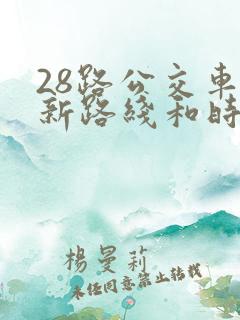 28路公交车
新路綫和時
楊曼莉
未经同意禁止转载